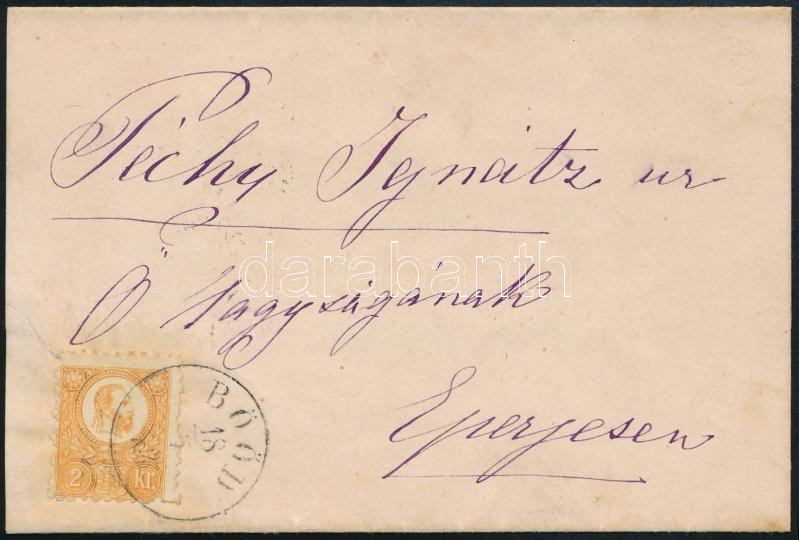 Péchy Ignátz ur
Ő Nagyságának
Eperjesen
darabanth
BÖŐD
18
2 kr.